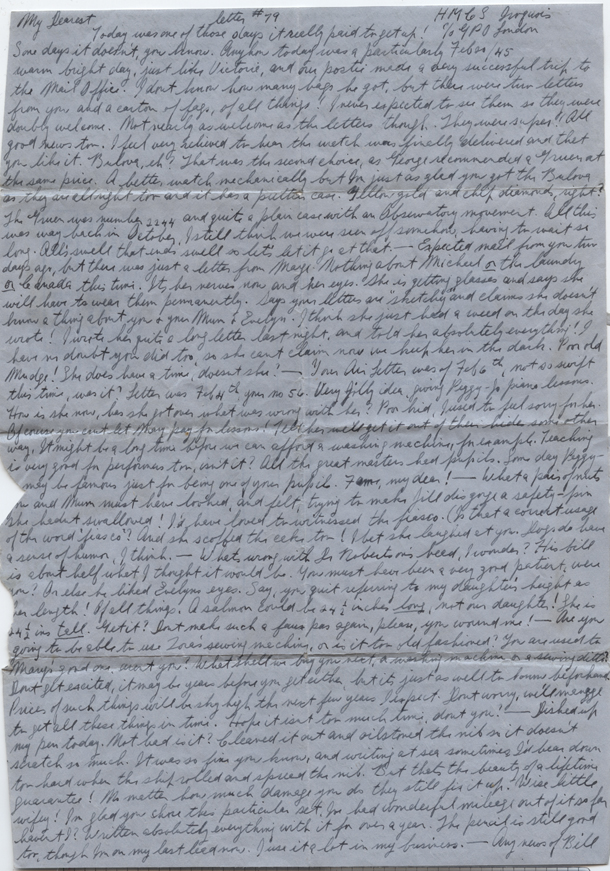 My Dearest letter #79 H.M.C.S. Iroquois
Today was one of those days it really paid to get up! % GPO London
Some days it doesn't, you know. Anyhow today was a particularly Feb 20/45
warm bright day, just like Victoria, and our postie made a very successful trip to
the Mail Office. I don't know how many bags he got, but there were two letters
from you and a carton of fags, of all things! I never expected to see them so they were
doubly welcome. Not nearly as welcome as the letters though. They were super! All
good news too. I feel very relieved to hear the watch was finally delivered and that
you like it. Bulova, eh? That was the second choice, as George recommended a Gruen at
the same price. A better watch mechanically but I'm just as glad you got the Bulova
as they are all right too and it has a prettier case. Yellow gold and chip diamond, right?
The Gruen was number 3244 and quite a plain case with an Observatory movement. All this
was way back in October. I still think we were seen off somehow, having to wait so
long. All's well that ends well so let's let it go at that. — Expected mail from you two
days ago, but there was just a letter from Marge. Nothing about Michael or the laundry
or Canada this time. It's her nerves now and her eyes. She is getting glasses and says she
will have to wear them permanently. Says your letters are 'sketchy' and claims she doesn't
know a thing about you & your Mum & Evelyn. I think she just had a weed on the day she
wrote! I wrote her quite a long letter last night, and told her absolutely everything! I
have no doubt you did too, so she can't claim now we keep her in the dark. Poor old
Mudge! She does have a time, doesn't she! — Your Air Letter was of Feb 6th, not as swift
this time, was it? Letter was Feb 4th your no. 56. Very jolly idea, giving Peggy-Jo piano lessons.
How is she now, has she got over what was wrong with her? Poor kid, I used to feel sorry for her.
Of course you can't let Mary pay for lessons! Tell her we'll get it out of their hide some other
way. It might be a long time before we can afford a washing machine, for example. Teaching
is very good for performers too, isn't it? All the great masters had pupils. Some day Peggy-
may be famous just for being one of your pupils. I am, my dear! — What a pair of nuts
you and Mum must have looked, and felt, trying to make Jill disgorge a safety-pin
she hadn't swallowed! I'd have loved to witnessed the fiasco. (Is that a correct usage
of the word 'fiasco'? And she scoffed the cake too! I bet she laughed at you. Dogs do have
a sense of humor, I think. — What's wrong with Dr Robertson's head, I wonder? His bill
is about half what I thought it would be. You must have been a very good patient, were
you? Or else he liked Evelyns eyes. Say, you quit referring to my daughter's height as
her length! Of all things. A salmon could be 24½ inches long, not our daughter! She is
24½ ins tall. Get it? Don't make such a faux pas again, please, you wound me! — Are you
going to be able to use Zora's sewing machine, or is it too old fashioned? You are used to
Mary's good one, aren't you? What shall we buy you next, a washing machine or a sewing ditto?
Don't get excited, it may be years before you get either but it's just as well to know beforehand.
Prices of such things will be sky high the next few years I expect. Don't worry, we'll manage
to get all these things in time. Hope it isn't too much time, don't you! — Dished up
my pen today. Not bad is it? Cleaned it out and oilstoned the nib so it doesn't
scratch so much. It was so fine you know, and writing at sea sometimes I'd bear down
too hard when the ship rolled and spread the nib. But that's the beauty of a lifetime
guarantee! No matter how much damage you do they still fix it up. Wise little
wifey! I'm glad you chose this particular set, I've had wonderful mileage out of it so far
haven't I? Written absolutely everything with it for over a year. The pencil is still good
too, though I'm on my last lead now. I use it a lot in my business. — Any news of Bill